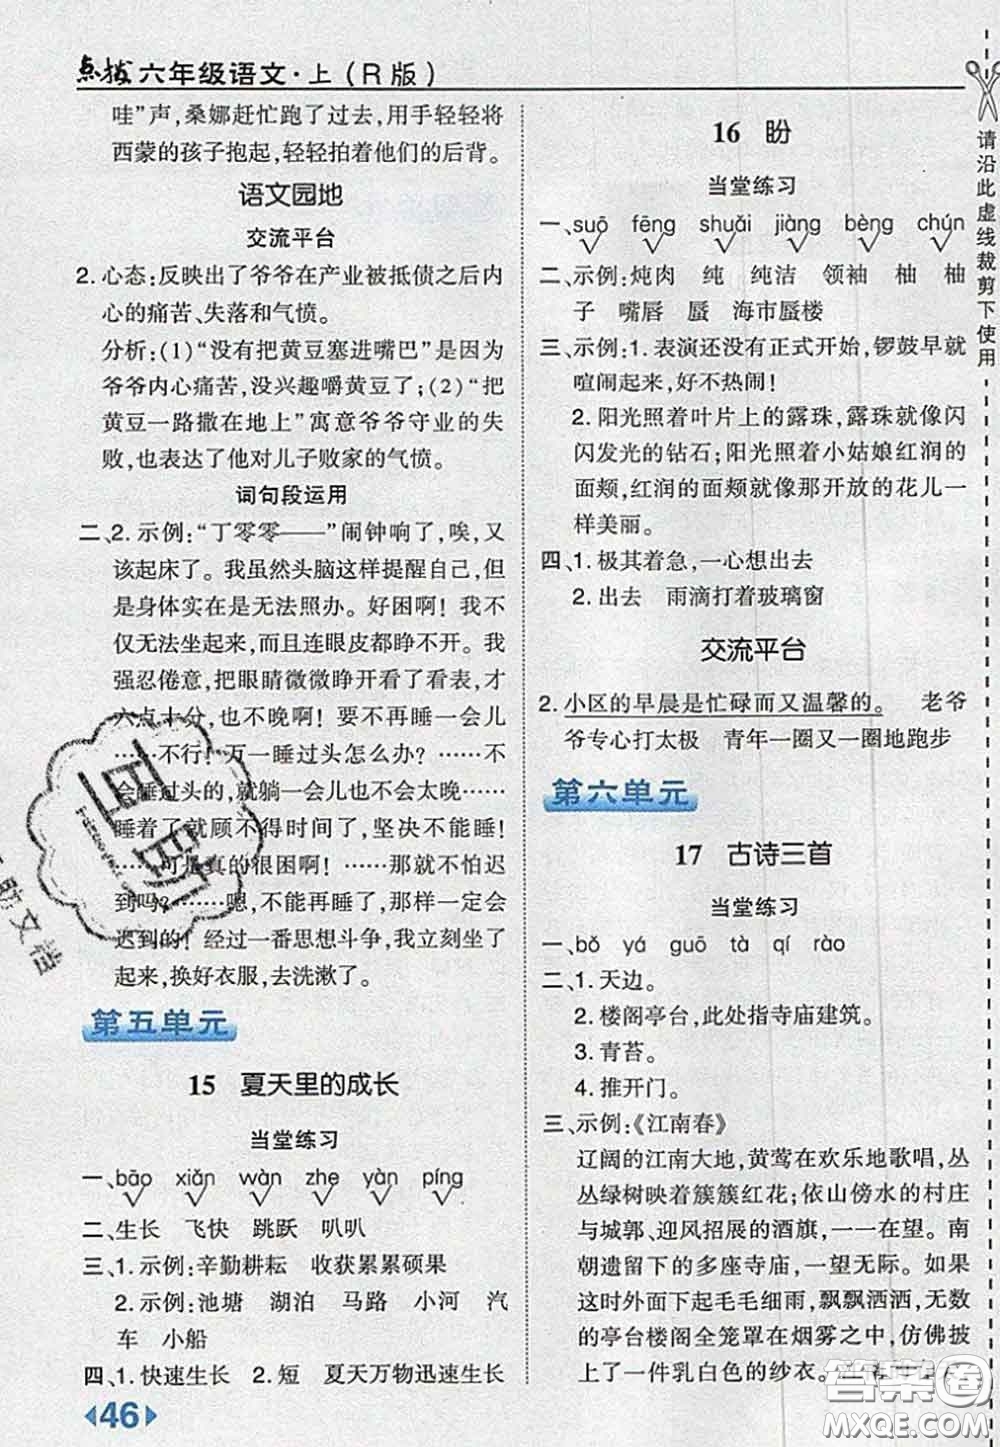 点拨 六年级语文·上(R版)
哇”声,桑娜赶忙跑了过去,用手轻轻将
西蒙的孩子抱起,轻轻拍着他们的后背。
语文园地
交流平台
2. 心态:反映出了爷爷在产业被抵债之后内
心的痛苦、失落和气愤。
分析:(1)“没有把黄豆塞进嘴巴”是因为
爷爷内心痛苦,没兴趣嚼黄豆了;(2)“把
黄豆一路撒在地上”寓意爷爷守业的失
败,也表达了他对儿子败家的气愤。
词句段运用
二、2. 示例:“丁零零——”闹钟响了,唉,又
该起床了。我虽然头脑这样提醒自己,但
是身体实在是无法照办。好困啊!我不
仅无法坐起来,而且连眼皮都睁不开。我
强忍倦意,把眼睛微微睁开看了看表,才
六点十分,也不晚啊!要不再睡一会儿
……不行!万一睡过头怎么办?不过,不
会睡过头的,就躺一会儿也不行吗?……
睡着了就顾不得时间了,坚决不能睡!
……可是真的很困啊!……难道不怕迟
到吗?……嗯,不能再睡了,那样一定会
迟到的!经过一番思想斗争,我立刻坐了
起来,换好衣服,去洗漱了。
第五单元
15 夏天里的成长
当堂练习
一、bāo xiǎn wàn zhe yàn píng
二、生长 飞快 跳跃 叭叭
三、1. 示例:辛勤耕耘 收获累累硕果
2. 示例:池塘 湖泊 马路 小河 汽
车 小船
四、1. 快速生长 2. 短 夏天万物迅速生长
46
16 盼
当堂练习
一、suō fēng shuǎi jiàng bèng chún
二、示例:炖肉 纯 纯洁 领袖 柚 柚
子 嘴唇 蜃 海市蜃楼
三、示例:1. 表演还没有正式开始,锣鼓早就
喧闹起来,好不热闹!
2. 阳光照着叶片上的露珠,露珠就像闪
闪发光的钻石;阳光照着小姑娘红润的
面颊,红润的面颊就像那开放的花儿一
样美丽。
四、1. 极其着急,一心想出去
2. 出去 雨滴打着玻璃窗
交流平台
2. 小区的早晨是忙碌而又温馨的。 老爷
爷专心打太极 青年一圈又一圈地跑步
第六单元
17 古诗三首
当堂练习
一、bǒ yá guō tà qí rào
二、1. 天边。
2. 楼阁亭台,此处指寺庙建筑。
3. 青苔。
4. 推开门。
三、示例:《江南春》
辽阔的江南大地,黄莺在欢乐地歌唱,丛
丛绿树映着簇簇红花;依山傍水的村庄
与城郭、迎风招展的酒旗,一一在望。南
朝遗留下的多座寺庙,一望无际。如果
这时外面下起毛毛细雨,飘飘洒洒,无数
的亭台楼阁全笼罩在烟雾之中,仿佛披
上了一件乳白色的纱衣。
请沿此虚线裁剪下使用
答案圈
MXQE.COM